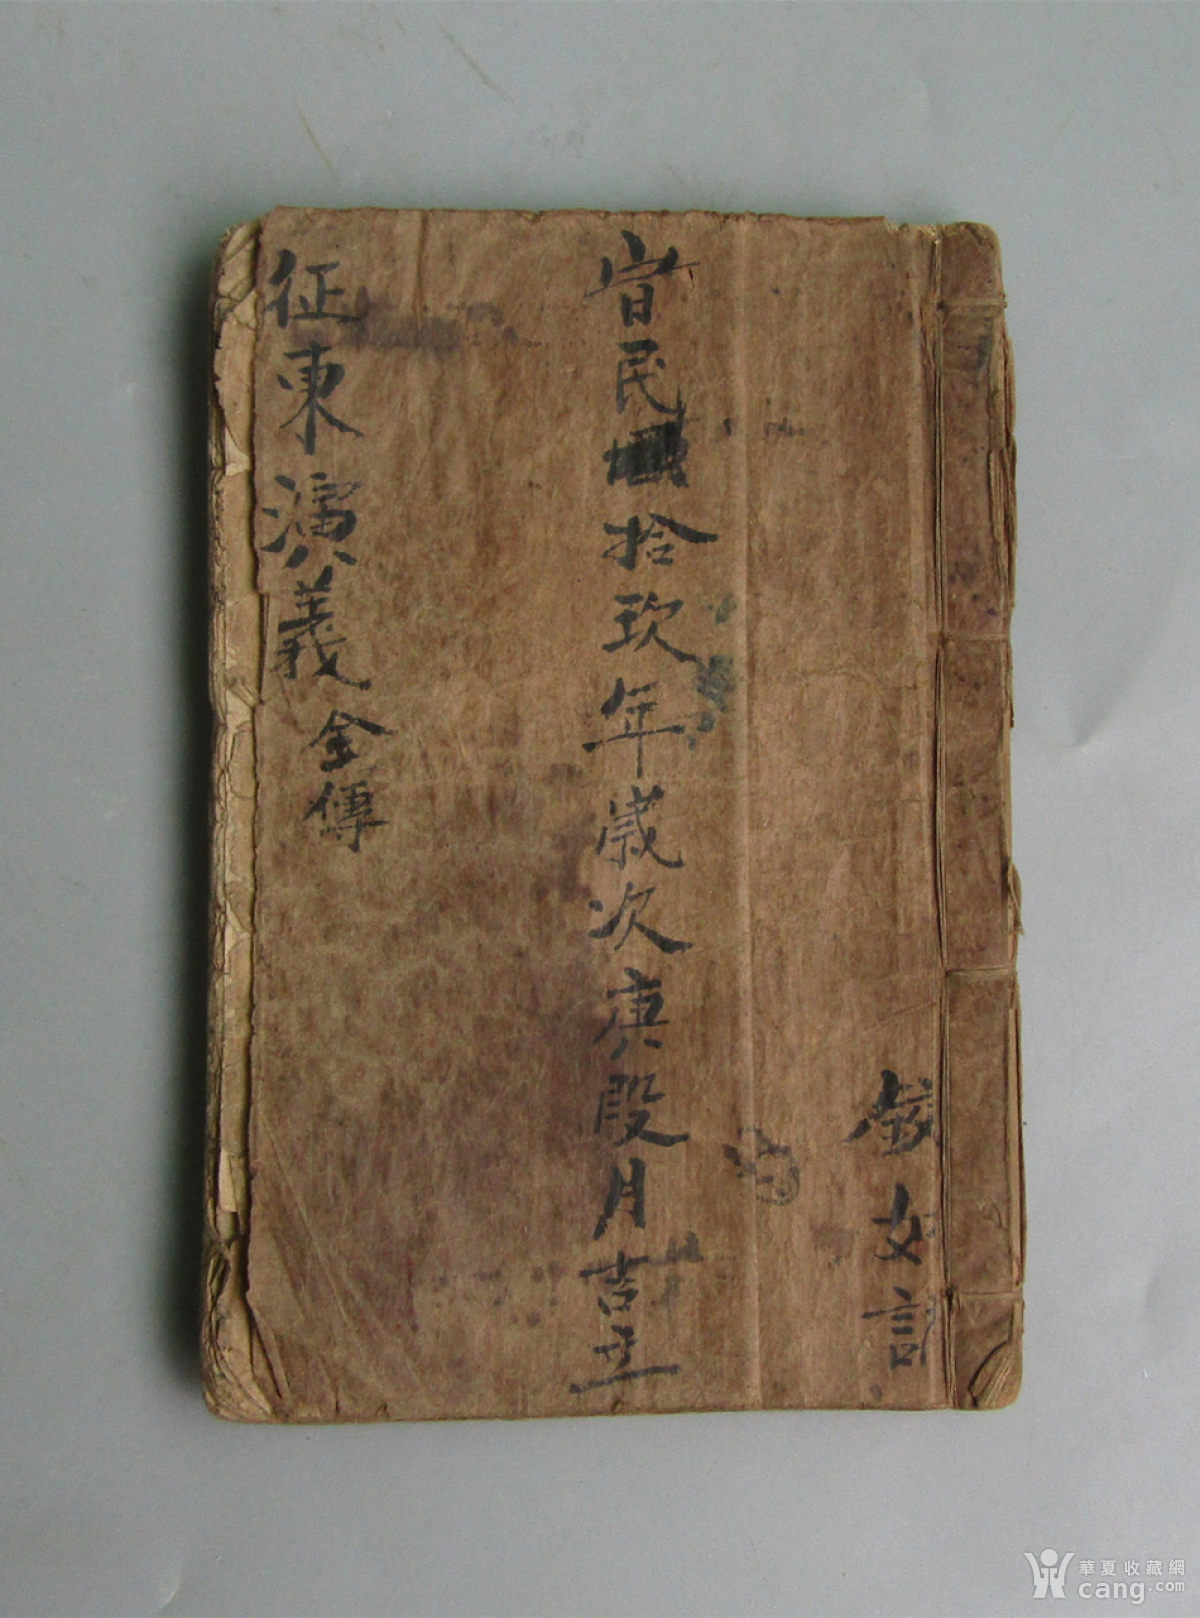 文
旹民拾玖年歲次庚段月吉立
征東演義全傳
華夏收藏網
cang.com